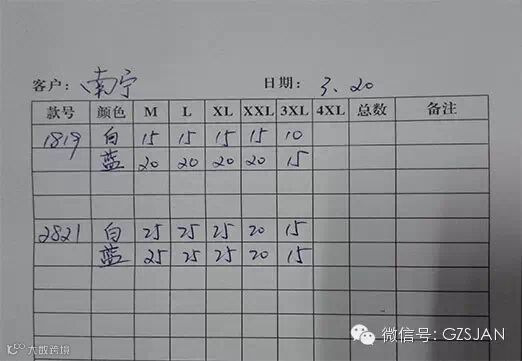 客户: 南宁 日期: 3.20
款号 颜色 M L XL XXL 3XL 4XL 总数 备注
1819 白 15 15 15 15 10
蓝 20 20 20 20 15
2821 白 25 25 25 20 15
蓝 25 25 25 20 15
微信号: GZSJAN
大数跨境